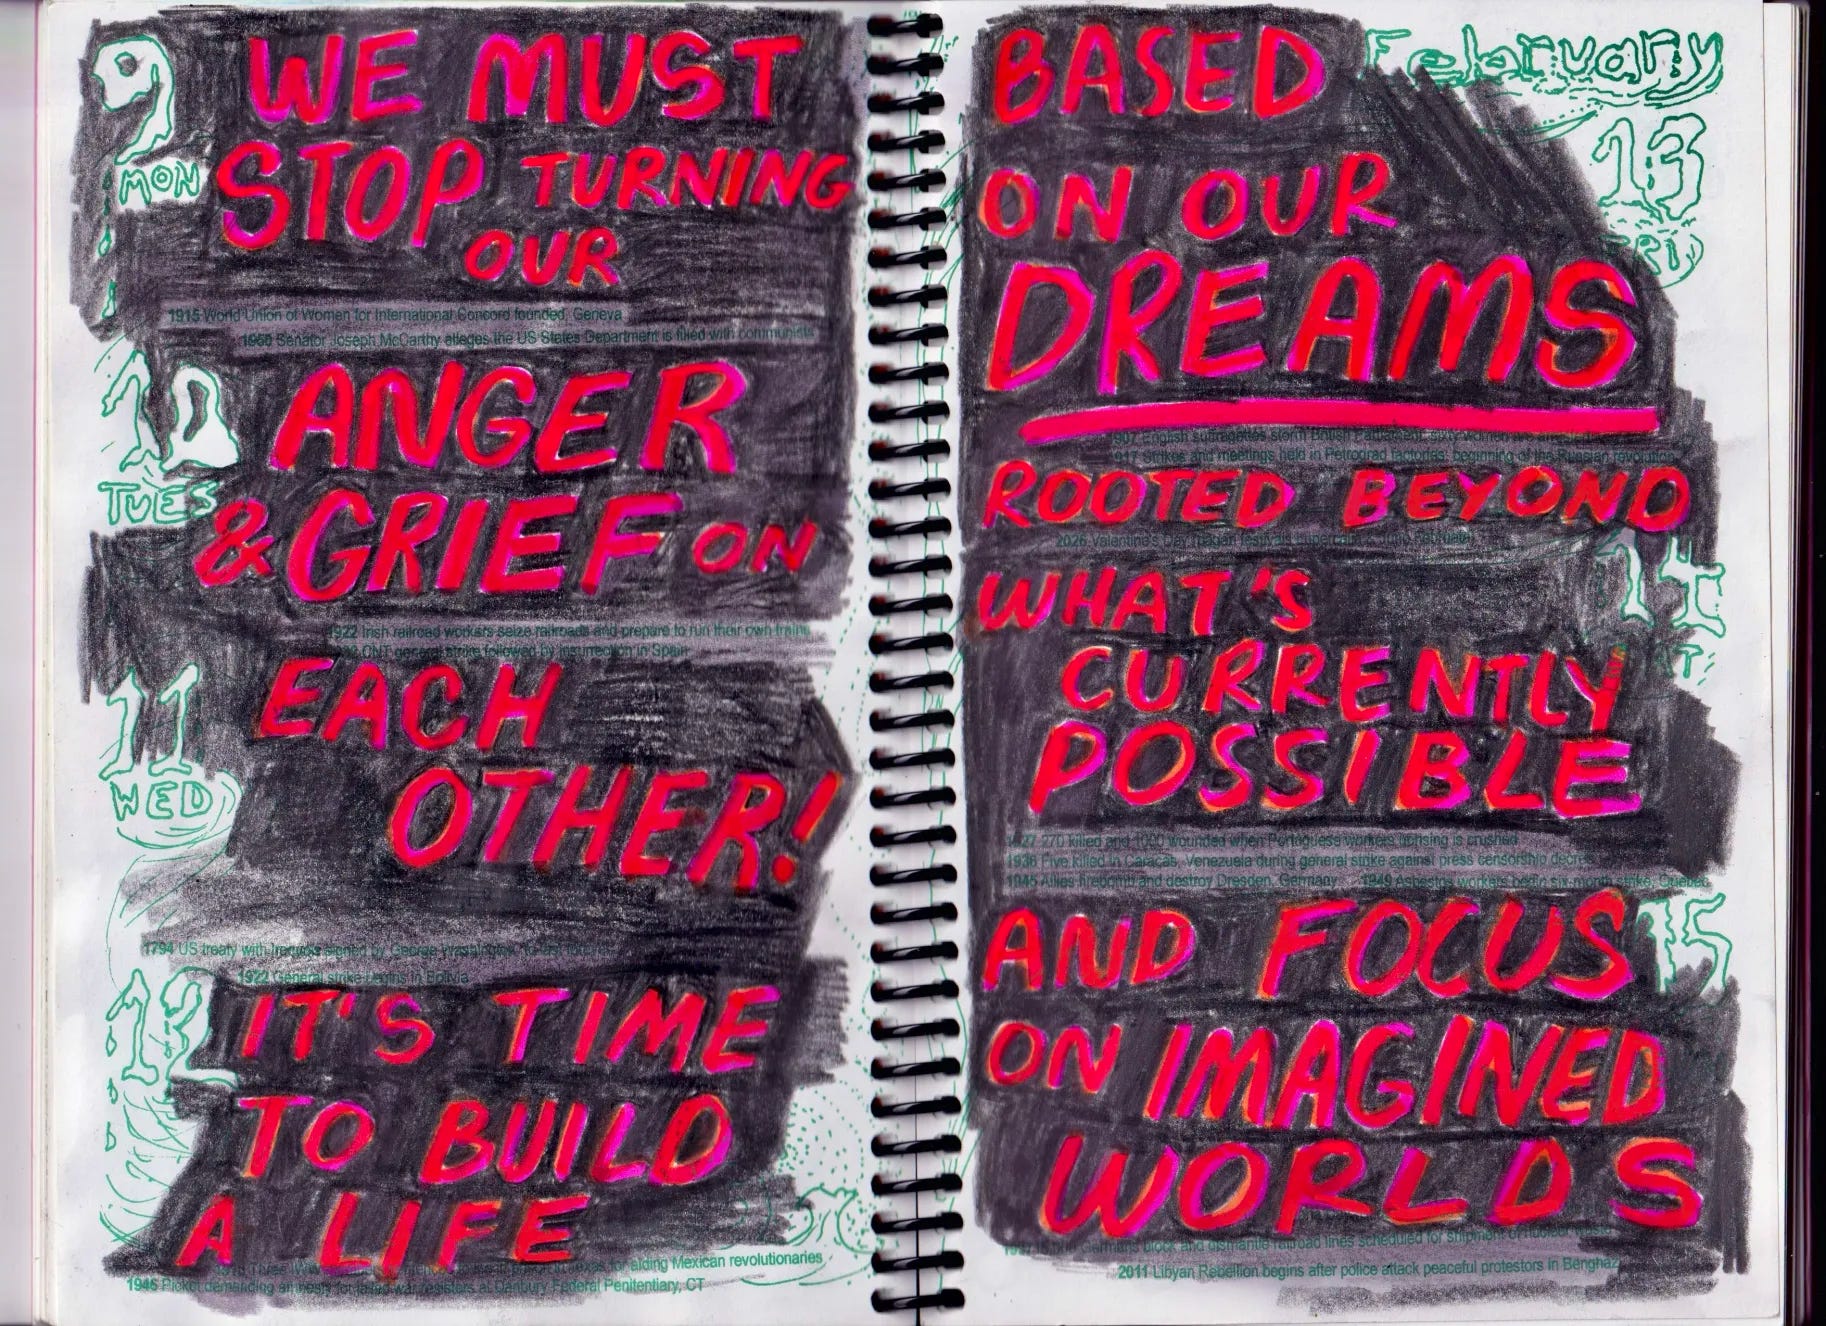 9
MON
WE MUST
STOP TURNING
OUR
1915 World Union of Women for International Concord founded, Geneva
1950 Senator Joseph McCarthy alleges the US States Department is filled with communists
10
TUES
ANGER
& GRIEF ON
1922 Irish railroad workers seize railroads and prepare to run their own trains
CNT general strike followed by insurrection in Spain
11
WED
EACH
OTHER!
1794 US treaty with Iroquois signed by George Washington
1922 General strike begins in Bolivia
12
IT'S TIME
TO BUILD
A LIFE
for aiding Mexican revolutionaries
1946 Picket demanding amnesty for war resisters at Danbury Federal Penitentiary, CT
February
13
FRI
BASED
ON OUR
DREAMS
1907 English suffragettes storm British Parliament, sixty women are
1917 Strikes and meetings held in Petrograd factories; beginning of the Russian revolution
ROOTED BEYOND
2026 Valentine's Day
14
WHAT'S
CURRENTLY
POSSIBLE
1927 270 killed and 1000 wounded when Portuguese workers uprising is crushed
1936 Five killed in Caracas, Venezuela during general strike against press censorship decree
1945 Allies firebomb and destroy Dresden, Germany 1949 Asbestos workers begin six month strike, Quebec
15
AND FOCUS
ON IMAGINED
WORLDS
Germans block and dismantle railroad lines scheduled for shipment of nuclear
2011 Libyan Rebellion begins after police attack peaceful protestors in Benghazi